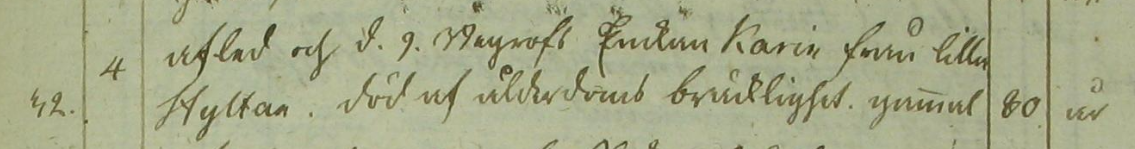 4 afled och d. 9. begrofs Enkan Karin från lilla
42. Hyltan. död af ålderdoms bräcklighet. gam̄al 80 år